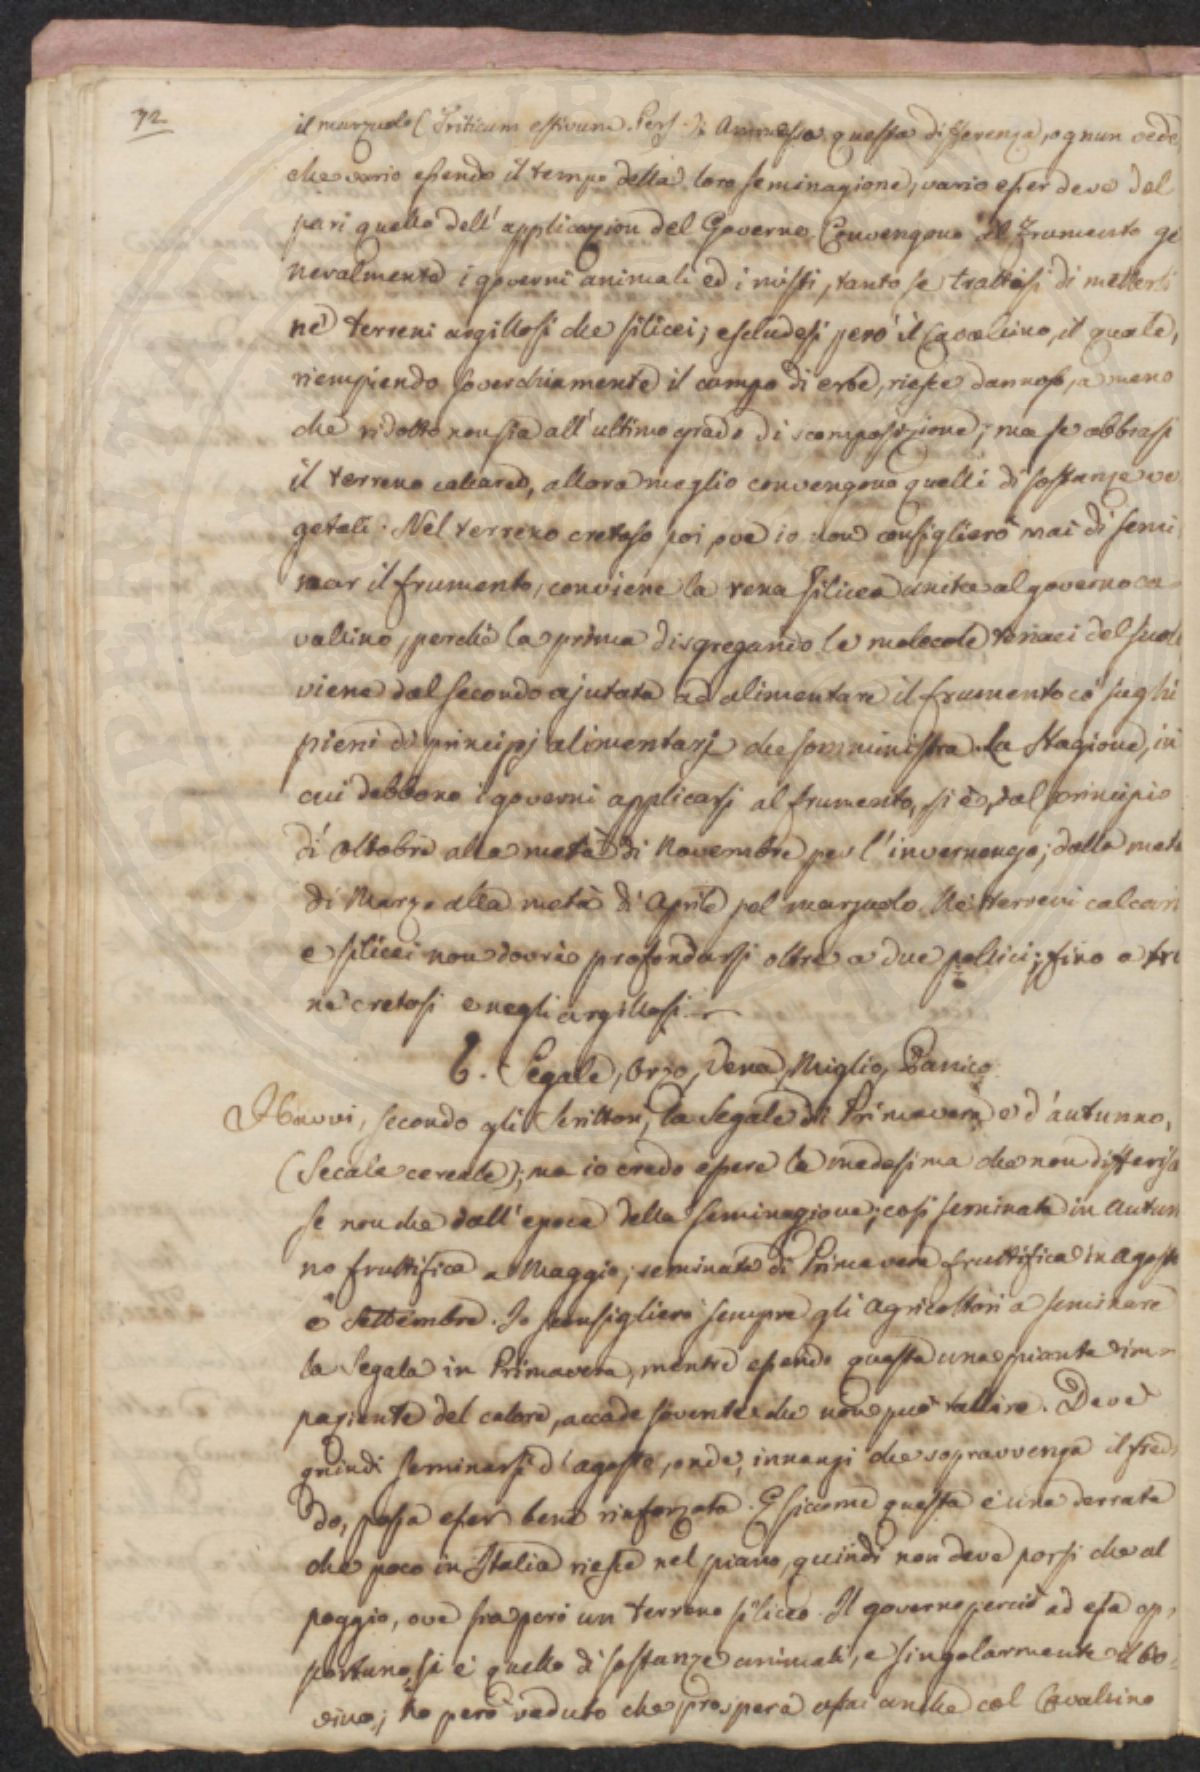 72
il marzuolo (Triticum estivum. Pers.) Ammessa questa differenza, ognun vede,
che vario essendo il tempo della loro seminagione, vario esser deve del
pari quello dell' applicazion del Governo. Convengono al frumento ge
neralmente i governi animali ed i misti, tanto se trattasi di metterli
ne' terreni argillosi che silicei; escludesi però il Cavallino, il quale,
riempiendo soverchiamente il campo di erbe, riesce dannoso, a meno
che ridotto non sia all' ultimo grado di scomposizione; ma se abbiasi
il terreno calcareo, allora meglio convengono quelli di sostanze ve
getali. Nel terreno cretoso poi, ove io non consiglierò mai di semi
nar il frumento, conviene la rena silicea unita al governo ca
vallino, perchè la prima disgregando le molecole tenaci del suolo
viene dal secondo ajutata ad alimentare il frumento co' sughi
pieni di principj alimentarj che somministra. La Stagione, in
cui debbono i governi applicarsi al frumento, si è, dal principio
di Ottobre alla metà di Novembre per l' invernengo; dalla metà
di Marzo alla metà di Aprile pel marzuolo. Ne' terreni calcari
e silicei non dovrà profondarsi oltre a due pollici; fino a tre
ne' cretosi e negli argillosi.
6. Segale, Orzo, Vena, Miglio, Panico.
Havvi, secondo gli Scrittori, la Segale di Primavera e d' autunno,
(Secale cereale); ma io credo essere la medesima che non differisca
se non che dall' epoca della seminagione; così seminata in Autun
no fruttifica a Maggio; seminata di Primavera fruttifica in Agosto
e Settembre. Io consiglierò sempre gli agricoltori a seminare
la Segala in Primavera, mentre essendo questa una pianta im=
paziente del calore, accade sovente che non può tallire. Deve
quindi seminarsi d' agosto, onde, innanzi che sopravvenga il fred=
do, possa esser bene rinforzata. E siccome questa è una derrata
che poco in Italia riesce nel piano, quindi non deve porsi che al
poggio, ove sia però un terreno siliceo. Il governo perciò ad essa op=
portuno, si è quello di sostanze animali, e singolarmente il bo=
vino; ho però veduto che prospera assai anche col Cavallino